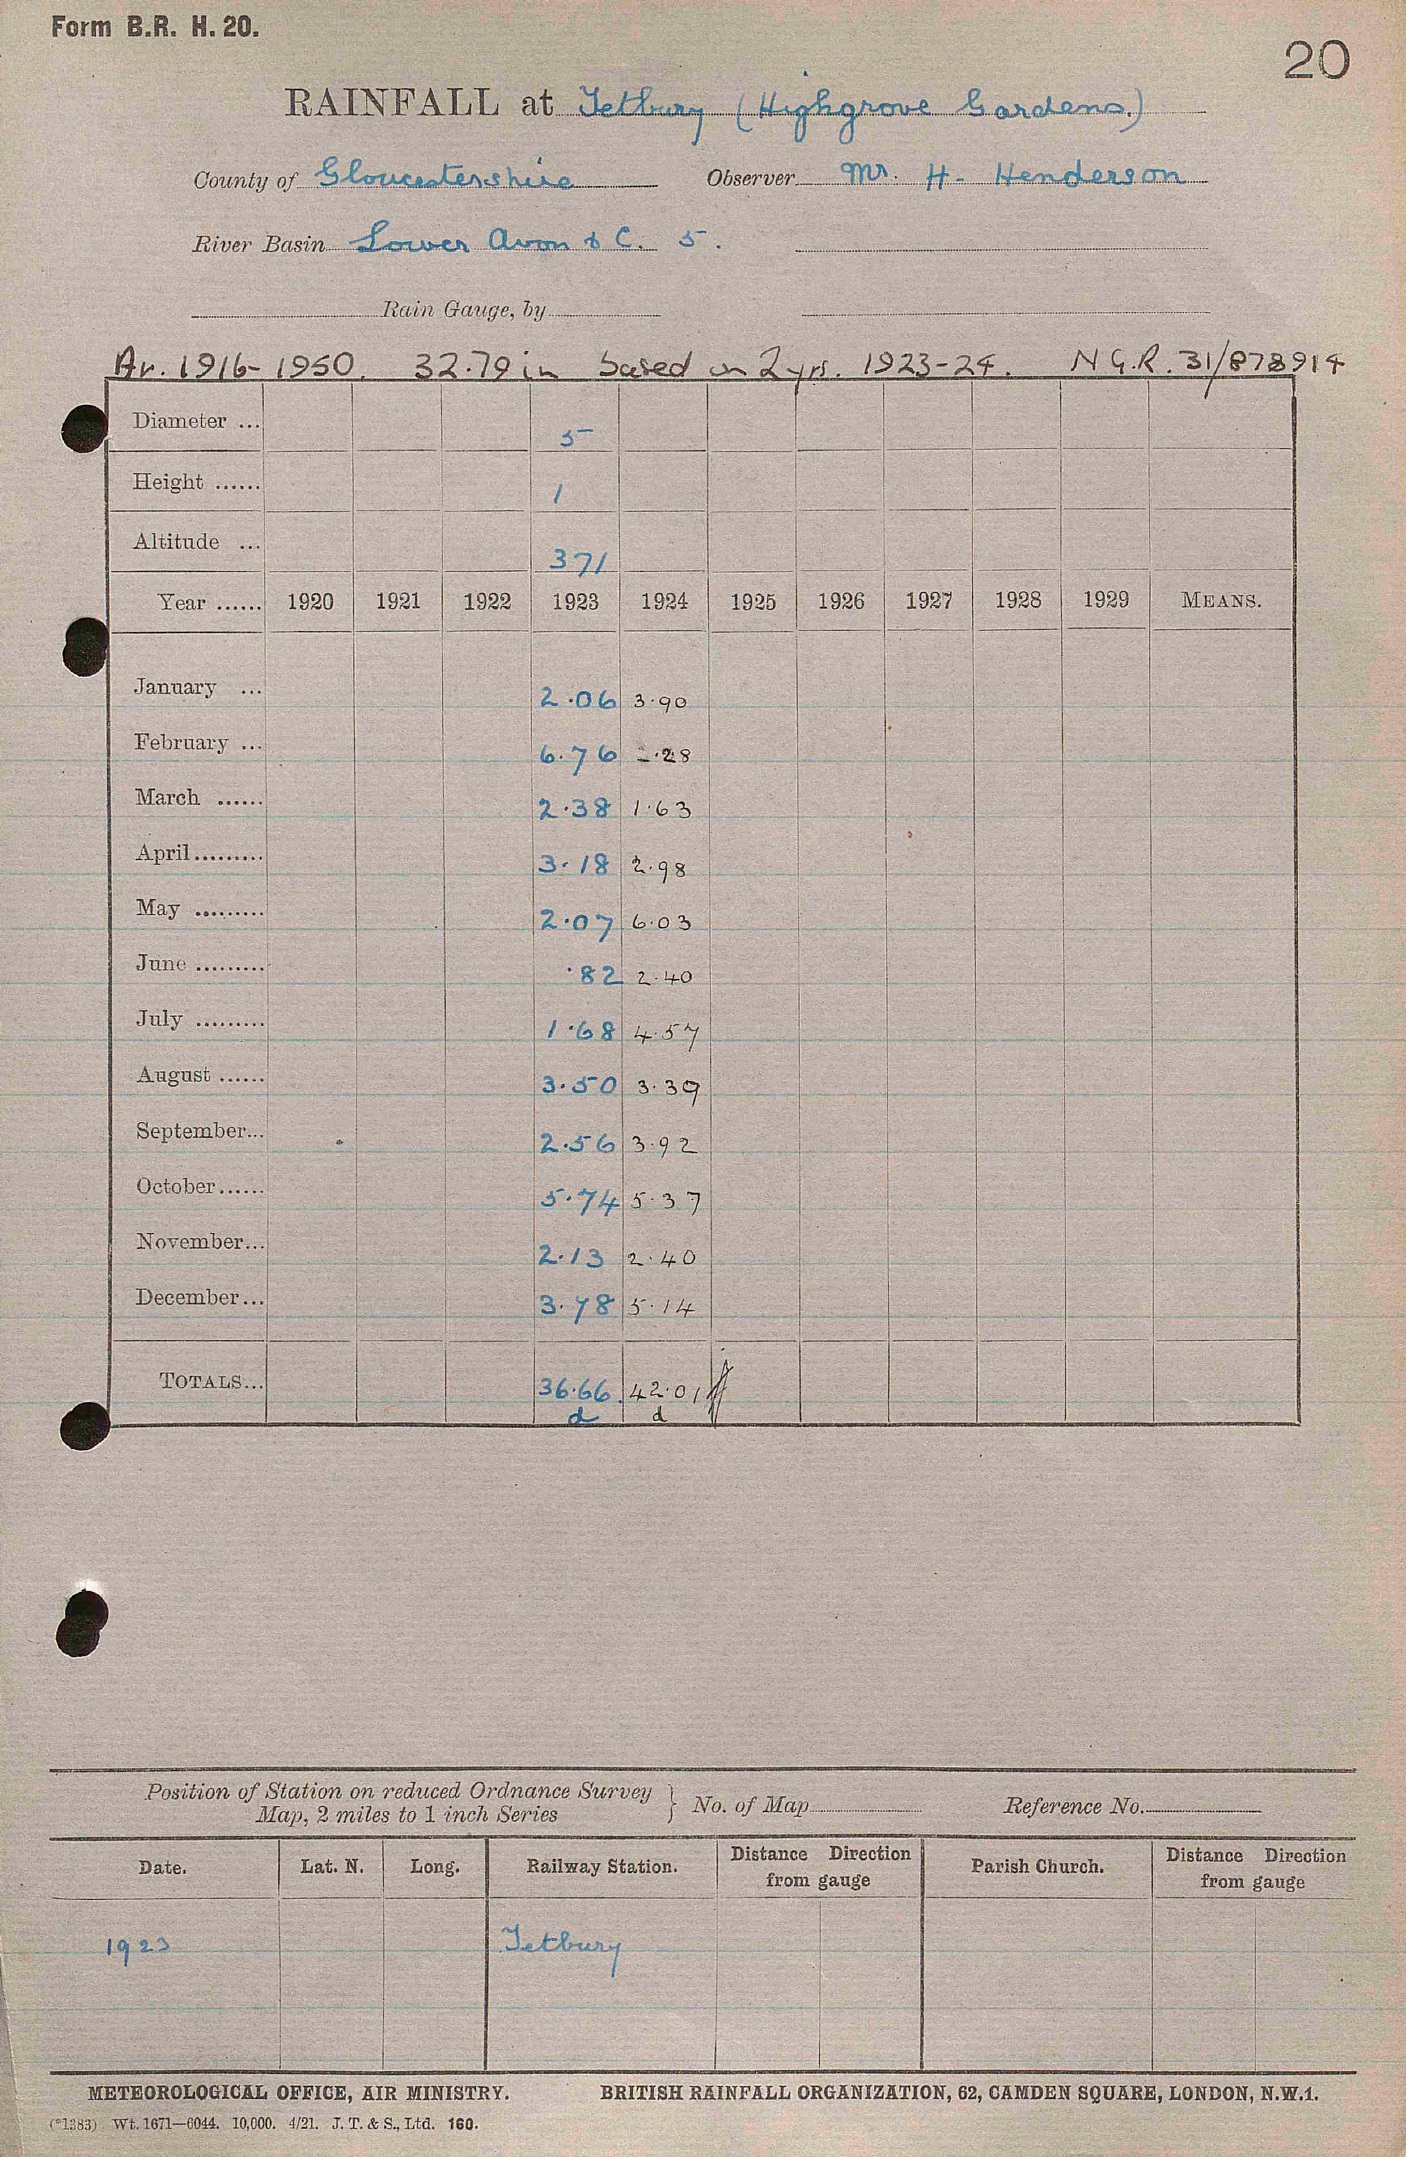 Form B.R. H. 20.
20
RAINFALL at Tetbury (Highgrove Gardens.)
County of Gloucestershire Observer Mr. H. Henderson
River Basin Lower Avon & C. 5.
Rain Gauge, by
Av. 1916-1950. 32.79 in based on 2 yrs. 1923-24. N.G.R. 31/878914
Diameter ... 5
Height ...... 1
Altitude ... 371
Year ...... 1920 1921 1922 1923 1924 1925 1926 1927 1928 1929 MEANS.
January ... 2.06 3.90
February ... 6.76 -.28
March ...... 2.38 1.63
April......... 3.18 2.98
May ......... 2.07 6.03
June ......... .82 2.40
July ......... 1.68 4.57
August ...... 3.50 3.39
September... 2.56 3.92
October...... 5.74 5.37
November... 2.13 2.40
December... 3.78 5.14
TOTALS... 36.66 42.01
d d
Position of Station on reduced Ordnance Survey
Map, 2 miles to 1 inch Series } No. of Map Reference No.
Date. Lat. N. Long. Railway Station. Distance Direction from gauge Parish Church. Distance Direction from gauge
1923 Tetbury
METEOROLOGICAL OFFICE, AIR MINISTRY. BRITISH RAINFALL ORGANIZATION, 62, CAMDEN SQUARE, LONDON, N.W.1.
(*1383) Wt. 1671—6044. 10,000. 4/21. J. T. & S., Ltd. 160.